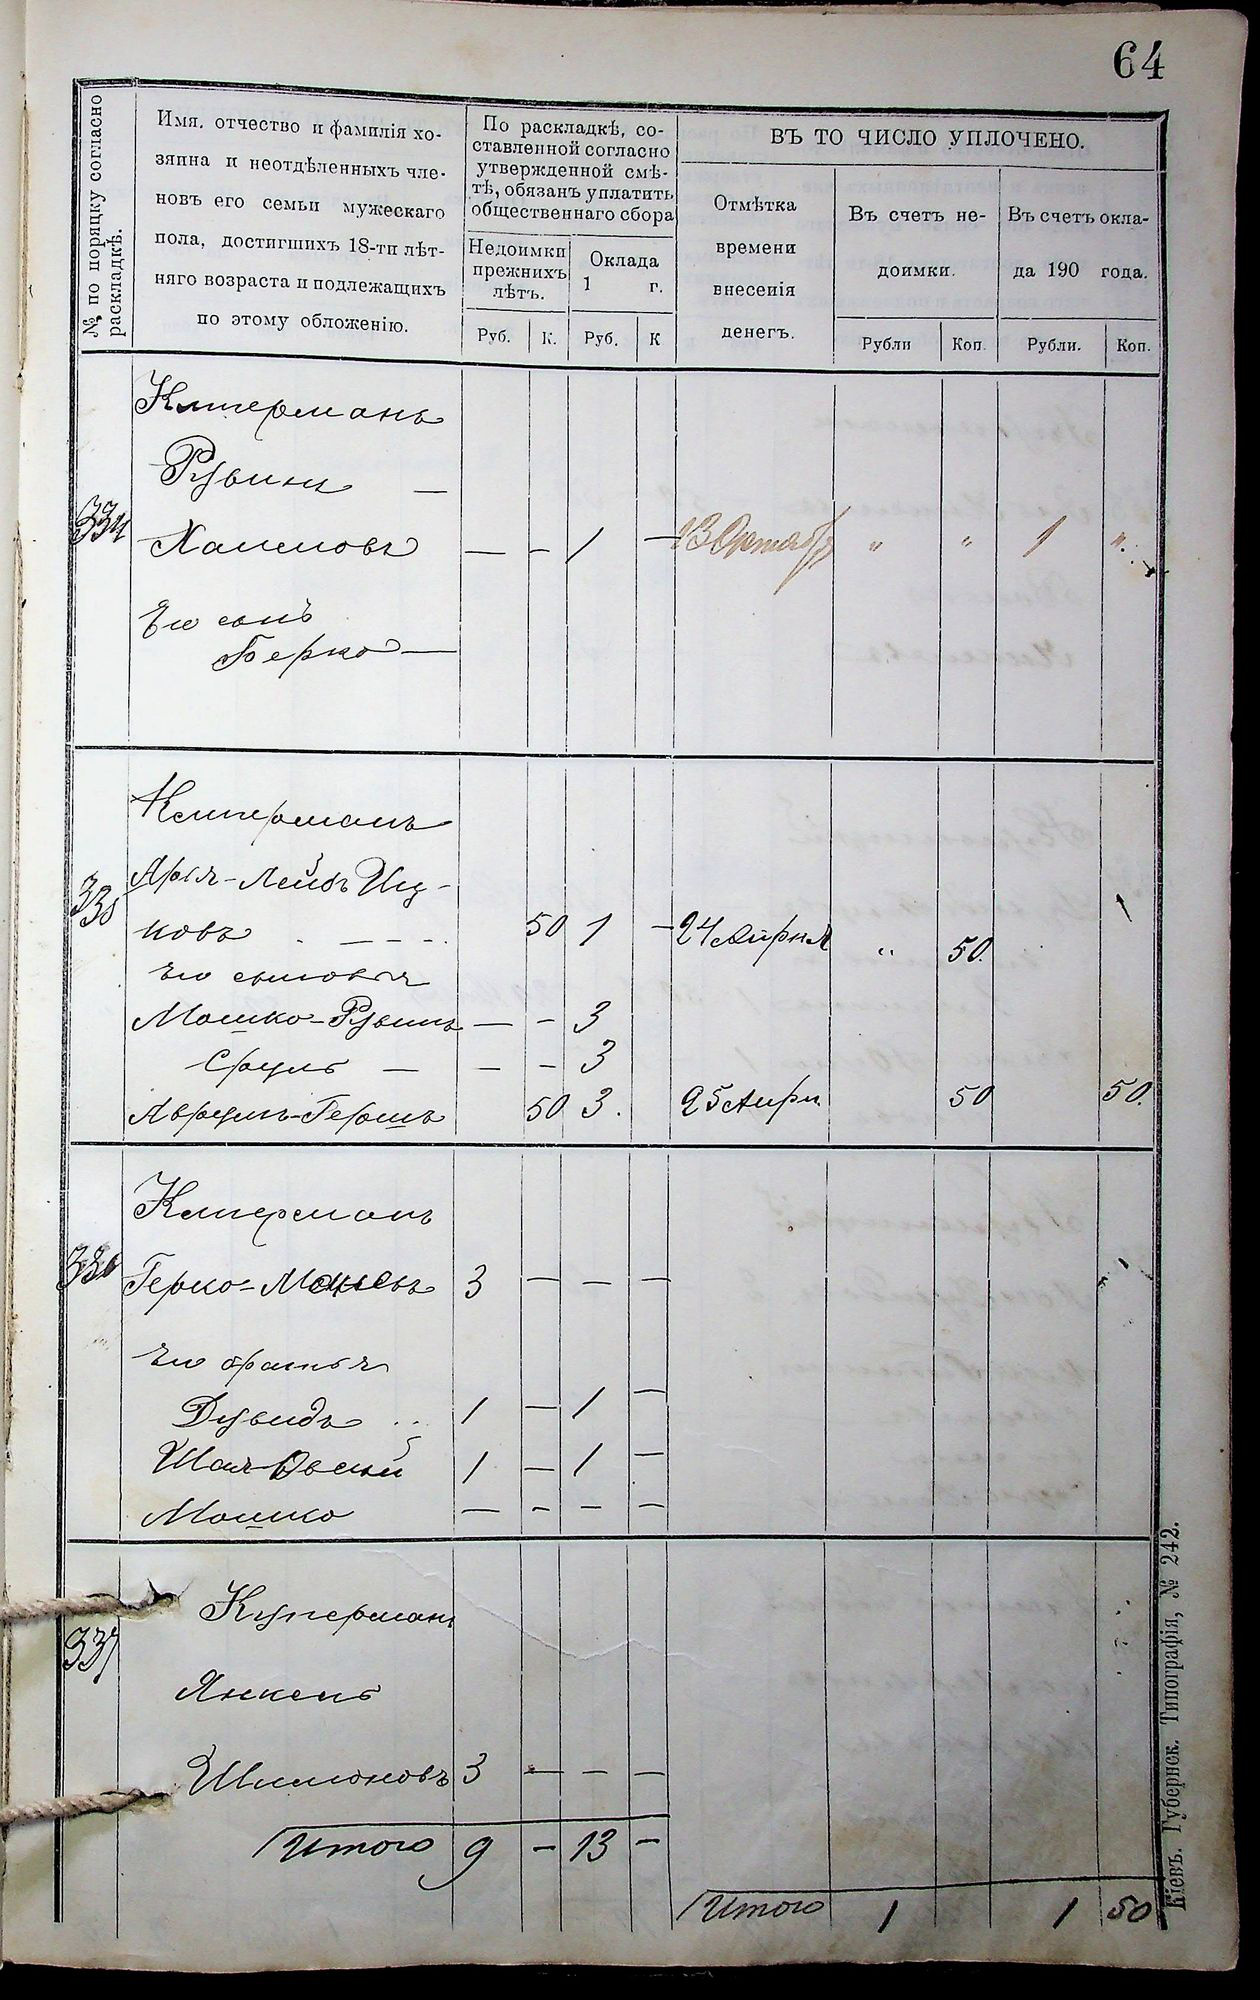 64
№ по порядку согласно раскладкѣ.
Имя, отчество и фамилія хо-
зяина и неотдѣленныхъ чле-
новъ его семьи мужескаго
пола, достигшихъ 18-ти лѣт-
няго возраста и подлежащихъ
по этому обложенію.
По раскладкѣ, со-
ставленной согласно
утвержденной смѣ-
тѣ, обязанъ уплатить
общественнаго сбора
Недоимки
прежнихъ
лѣтъ.
Оклада
1 г.
Руб. К. Руб. К
ВЪ ТО ЧИСЛО УПЛОЧЕНО.
Отмѣтка
времени
внесенія
денегъ.
Въ счетъ не-
доимки.
Въ счетъ окла-
да 190 года.
Рубли Коп. Рубли. Коп.
Куперманъ
Рувинъ —
334 Хаимовъ — - 1 — 13 Октября " " 1 "
Его сынъ
Берко —
Куперманъ
335 Арья-Лейбъ Иц-
ковъ . — — - - 50 1 — 24 Апрѣля " 50.
Его сыновья
Мошко-Рувинъ — - 3
Сруль — — - 3
Аврумъ-Гершъ 50 3. 25 Апрѣ. 50 50.
Куперманъ
336 Герко-Мойсей 3 — — —
Его братья
Дувидъ .. 1 — 1 —
Шая-Овсей 1 — 1 —
Мошко — - — —
Куперманъ
337
Янкель
Шимоновъ 3 — — —
Итого 9 — 13 —
Итого 1 1 50
Кіевъ. Губернск. Типографія, № 242.